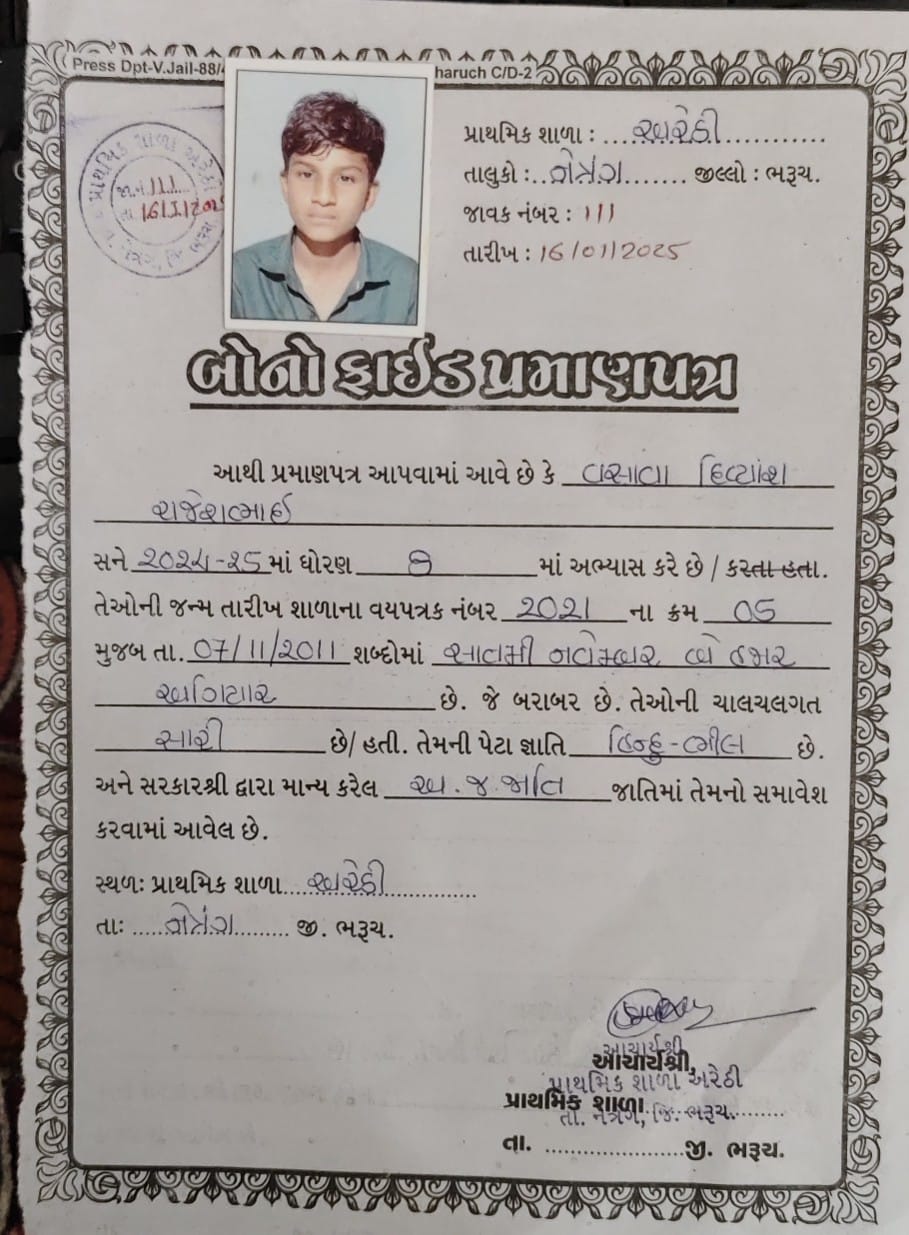 Press Dpt-V.Jail-88/
haruch C/D-2
પ્રાથમિક શાળા અરેઠી
જા.નં. 111
તા. 16/1/2025
તા. નેત્રંગ, જિ. ભરૂચ
પ્રાથમિક શાળા : અરેઠી
તાલુકો : નેત્રંગ જીલ્લો : ભરૂચ.
જાવક નંબર : 111
તારીખ : 16/01/2025
બોનોફાઈડ પ્રમાણપત્ર
આથી પ્રમાણપત્ર આપવામાં આવે છે કે વસાવા દિવ્યાંશ
રાજેશભાઈ
સને ૨૦૨૪-૨૫ માં ધોરણ ૭ માં અભ્યાસ કરે છે / કરતા હતા.
તેઓની જન્મ તારીખ શાળાના વયપત્રક નંબર 2021 ના ક્રમ 05
મુજબ તા. 07/11/2011 શબ્દોમાં સાતમી નવેમ્બર બે હજાર
અગિયાર છે. જે બરાબર છે. તેઓની ચાલચલગત
સારી છે/ હતી. તેમની પેટા જ્ઞાતિ હિન્દુ-ભીલ છે.
અને સરકારશ્રી દ્વારા માન્ય કરેલ અ.જ.જાતિ જાતિમાં તેમનો સમાવેશ
કરવામાં આવેલ છે.
સ્થળઃ પ્રાથમિક શાળા અરેઠી
તાઃ નેત્રંગ જી. ભરૂચ.
આચાર્યશ્રી
આચાર્યશ્રી,
પ્રાથમિક શાળા અરેઠી
પ્રાથમિક શાળા
તા. નેત્રંગ, જિ. ભરૂચ.
તા. જી. ભરૂચ.